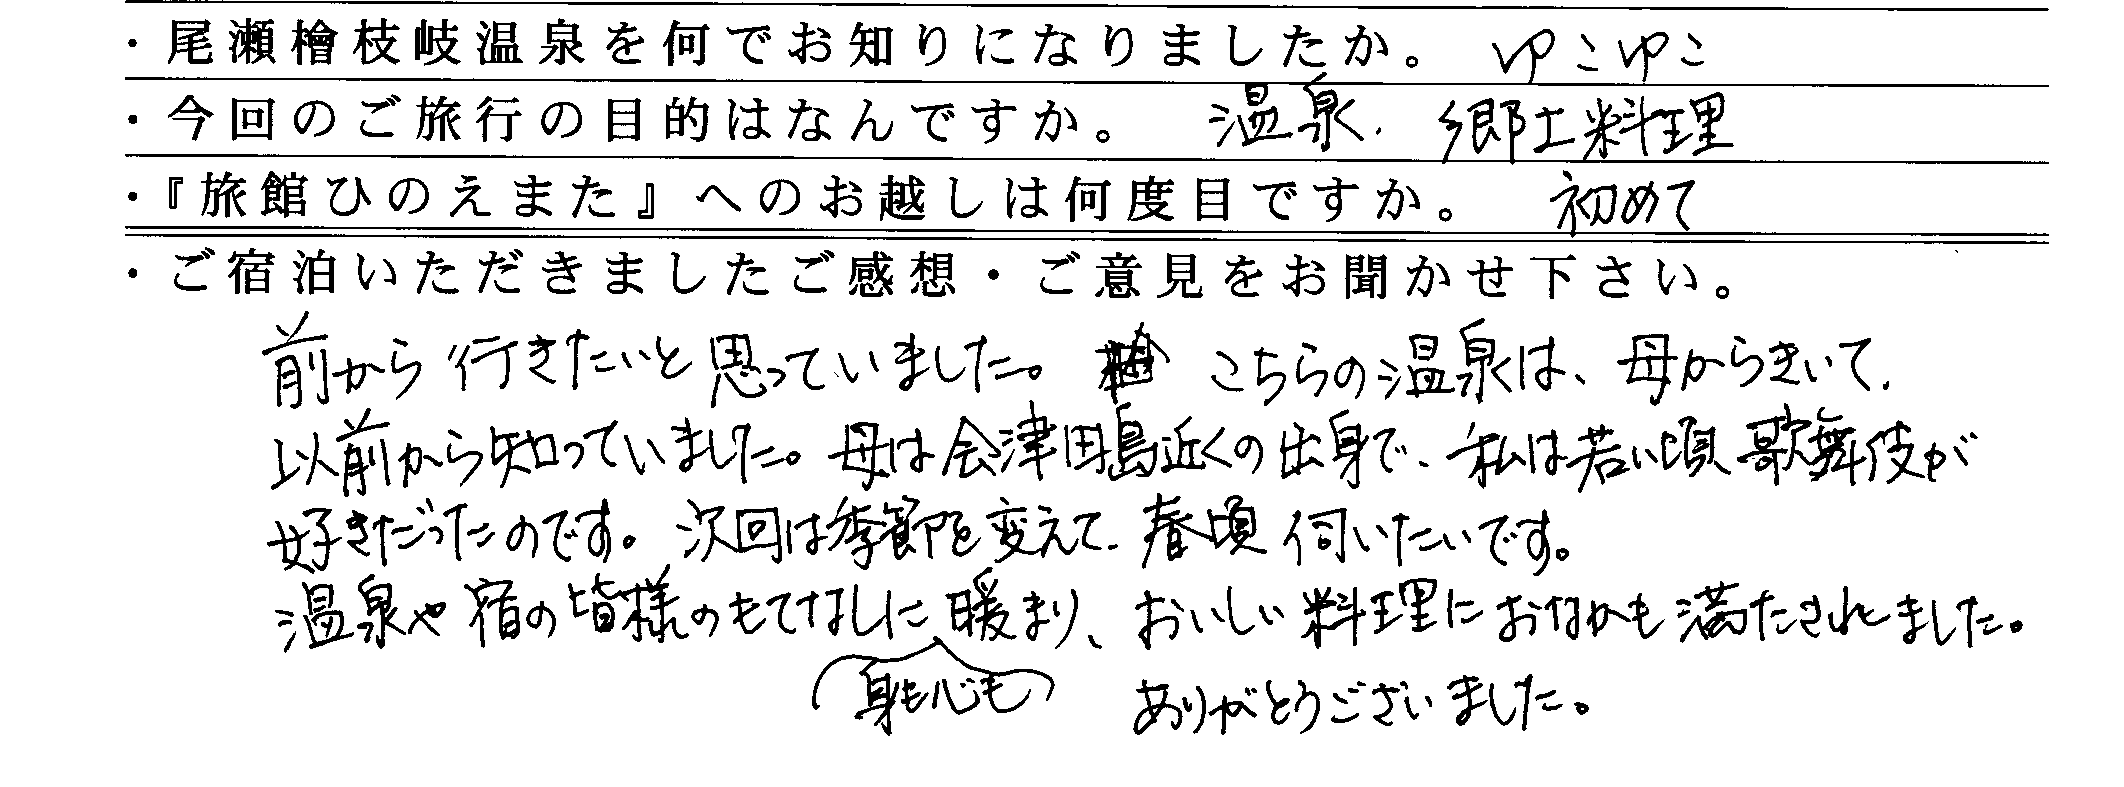 ・尾瀬檜枝岐温泉を何でお知りになりましたか。 ゆこゆこ
・今回のご旅行の目的はなんですか。 温泉、郷土料理
・『旅館ひのえまた』へのお越しは何度目ですか。 初めて
・ご宿泊いただきましたご感想・ご意見をお聞かせ下さい。
前から行きたいと思っていました。 こちらの温泉は、母からきいて、
以前から知っていました。母は会津田島近くの出身で、私は若い頃歌舞伎が
好きだったのです。次回は季節を変えて、春頃伺いたいです。
温泉や宿の皆様のもてなしに暖まり、おいしい料理におなかも満たされました。
身も心も ありがとうございました。